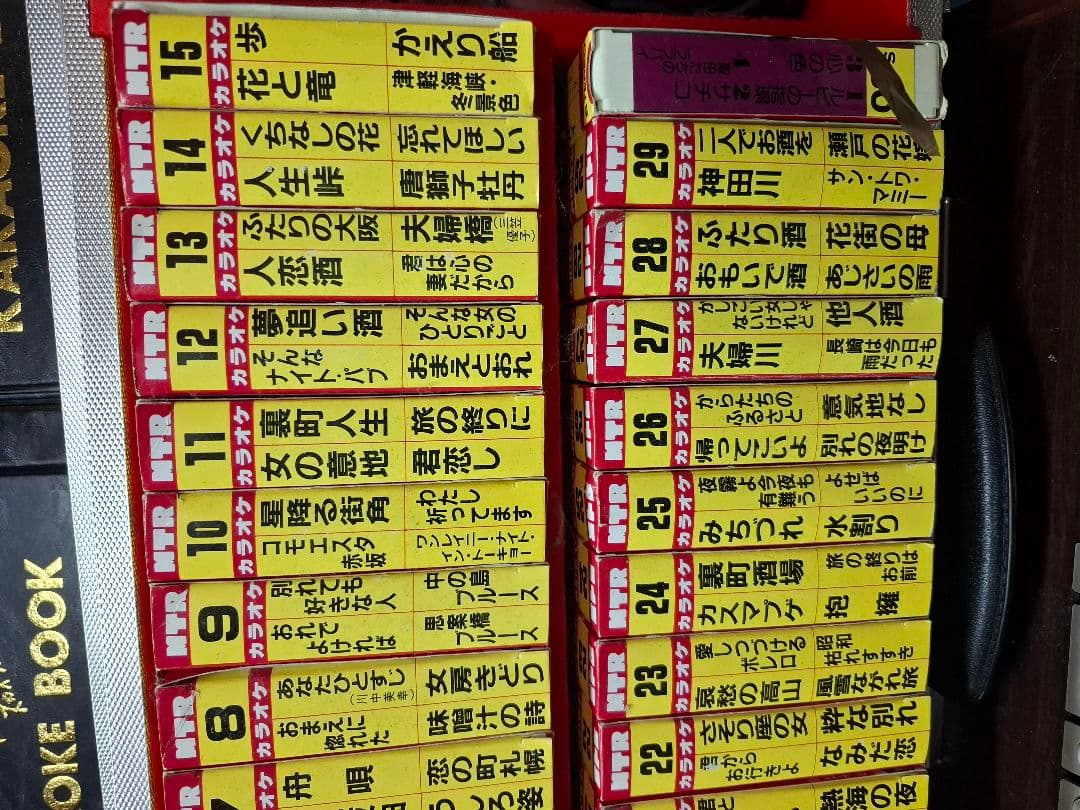 KARAOKE
OKE BOOK
MTR
15
カラオケ
歩
かえり船
花と竜
津軽海峡・
冬景色
MTR
14
カラオケ
くちなしの花
忘れてほしい
人生峠
唐獅子牡丹
MTR
13
カラオケ
ふたりの大阪
夫婦橋
(三笠
優子)
人恋酒
君は心の
妻だから
MTR
12
カラオケ
夢追い酒
そんな女の
ひとりごと
そんな
ナイト・パブ
おまえとおれ
MTR
11
カラオケ
裏町人生
旅の終りに
女の意地
君恋し
MTR
10
カラオケ
星降る街角
わたし
祈ってます
コモエスタ
赤坂
ワンレイニー・ナイト・
イン・トーキョー
MTR
9
カラオケ
別れても
好きな人
中の島
ブルース
おれで
よければ
思案橋
ブルース
MTR
8
カラオケ
あなたひとすじ
(川中美幸)
女房きどり
おまえに
惚れた
味噌汁の詩
舟唄
恋の町札幌
うしろ姿
1 ルビーの指環 2 サチコ
MTR
29
カラオケ
二人でお酒を
瀬戸の花嫁
神田川
サン・トワ・
マミー
MTR
28
カラオケ
ふたり酒
花街の母
おもいで酒
あじさいの雨
MTR
27
カラオケ
かしこい女じゃ
ないけれど
他人酒
夫婦川
長崎は今日も
雨だった
MTR
26
カラオケ
からたちの
ふるさと
意気地なし
帰ってこいよ
別れの夜明け
MTR
25
カラオケ
夜霧よ今夜も
有難う
よせば
いいのに
みちづれ
水割り
MTR
24
カラオケ
裏町酒場
旅の終りは
お前
カスマプゲ
抱擁
MTR
23
カラオケ
愛しつづける
ボレロ
昭和
枯れすすき
哀愁の高山
風雪ながれ旅
MTR
22
カラオケ
さそり座の女
粋な別れ
君から
お行きよ
なみだ恋
熱海の夜